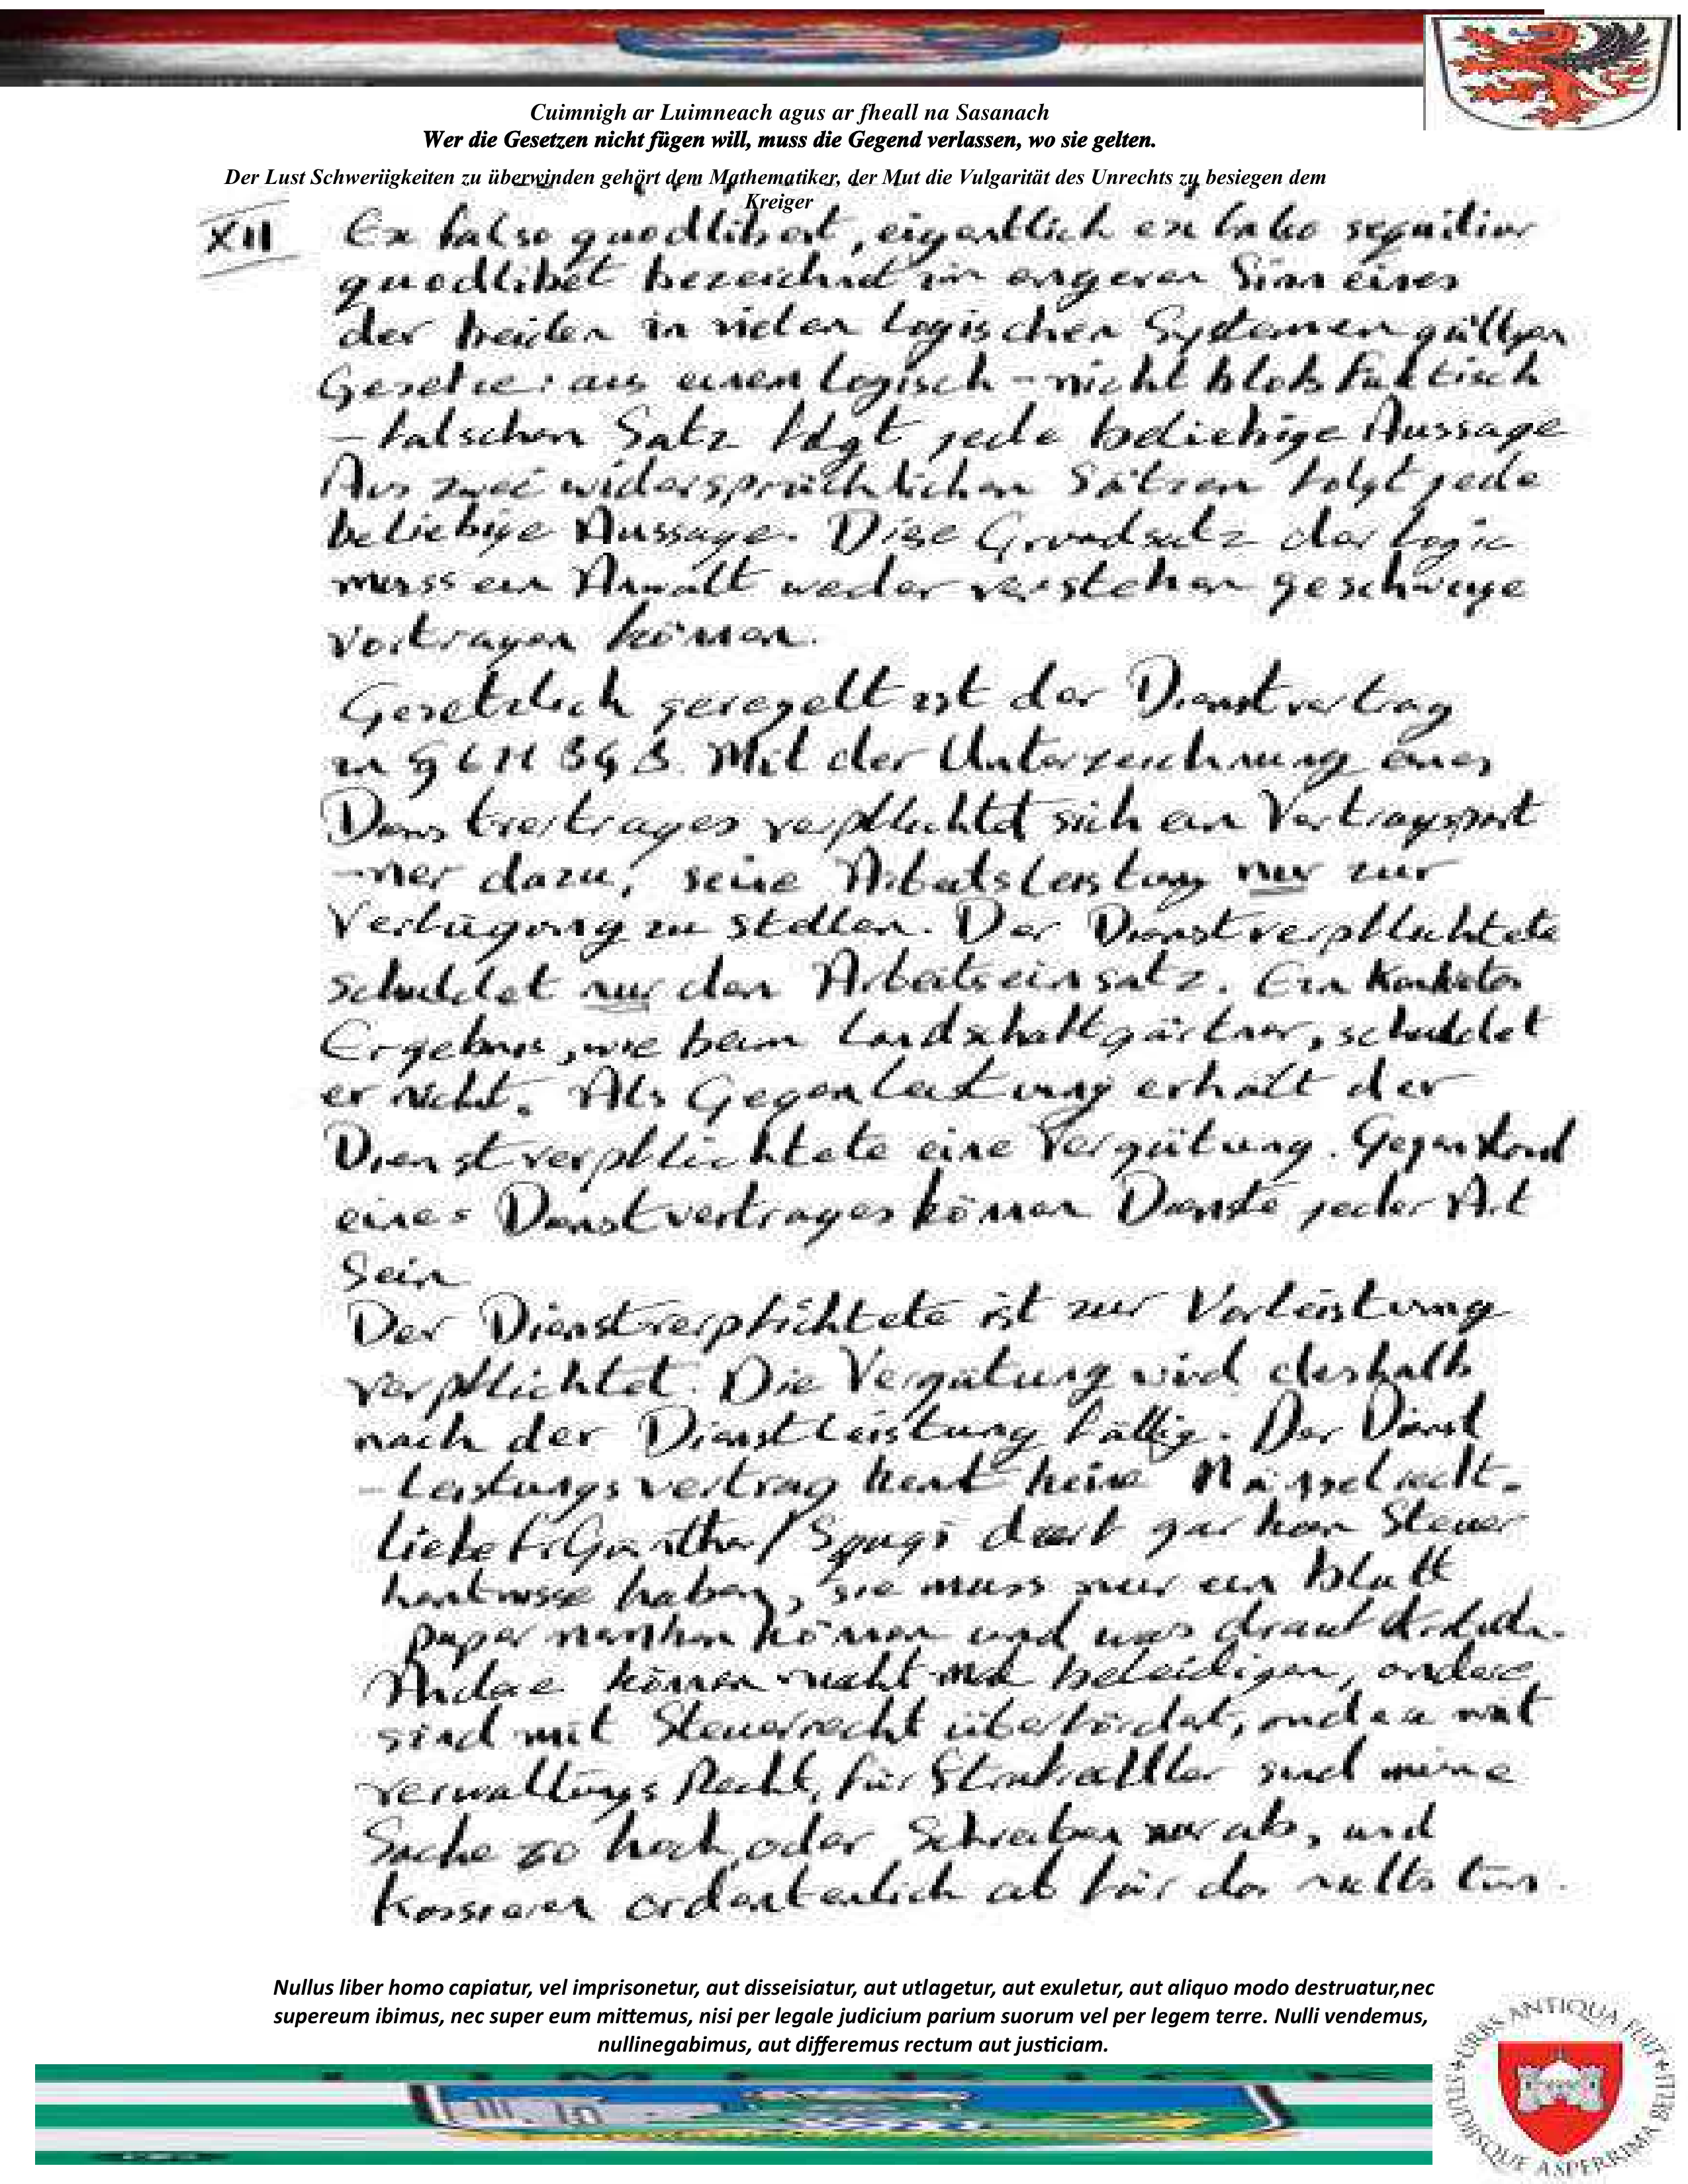 Cuimnigh ar Luimneach agus ar fheall na Sasanach
Wer die Gesetzen nicht fügen will, muss die Gegend verlassen, wo sie gelten.
Der Lust Schweriigkeiten zu überwinden gehört dem Mathematiker, der Mut die Vulgarität des Unrechts zu besiegen dem
Kreiger
XII Ex falso quodlibet, eigentlich ex falso sequitur
quodlibet bezeichnet im engeren Sinn eines
der beiden in vielen logischen Systemen gültigen
Gesetze: aus einem logisch - nicht bloß faktisch
- falschen Satz folgt jede beliebige Aussage
Aus zwei widersprüchlichen Sätzen folgt jede
beliebige Aussage. Diese Grundsatz der Logic
muss ein Anwalt weder verstehen geschweige
vortragen können.
Gesetzlich geregelt ist der Dienstvertrag
in § 611 BGB. Mit der Unterzeichnung eines
Dienstvertrages verpflichtet sich ein Vertragspart
-ner dazu, seine Arbeitsleistung nur zur
Verfügung zu stellen. Der Dienstverpflichtete
schuldet nur den Arbeitseinsatz. Ein Konkretes
Ergebnis, wie beim Landschaftgärtner, schuldet
er nicht. Als Gegenleistung erhält der
Dienstverpflichtete eine Vergütung. Gegenstand
eines Dienstvertrages können Dienste jeder Art
sein
Der Dienstverpflichtete ist zur Vorleistung
verpflichtet. Die Vergütung wird deshalb
nach der Dienstleistung fällig. Der Dienst
-leistungsvertrag kent keine Mängelrecht.
Liebe Fr. / gar kein Steuer
kentnisse haben, sie muss nur ein blatt
paper können und was drauf
Andere können nicht beleidigen, andere
sind mit Steuerrecht überfordert, andere mit
verwaltungs Recht, für sind meine
Sache zo hoch, oder Schreiben nur ab, und
kassieren ordentlich ab für das nichts tun.
Nullus liber homo capiatur, vel imprisonetur, aut disseisiatur, aut utlagetur, aut exuletur, aut aliquo modo destruatur,nec
supereum ibimus, nec super eum mittemus, nisi per legale judicium parium suorum vel per legem terre. Nulli vendemus,
nullinegabimus, aut differemus rectum aut justiciam.
URBS ANTIQUA FUIT STUDIISQUE ASPERRIMA BELLI